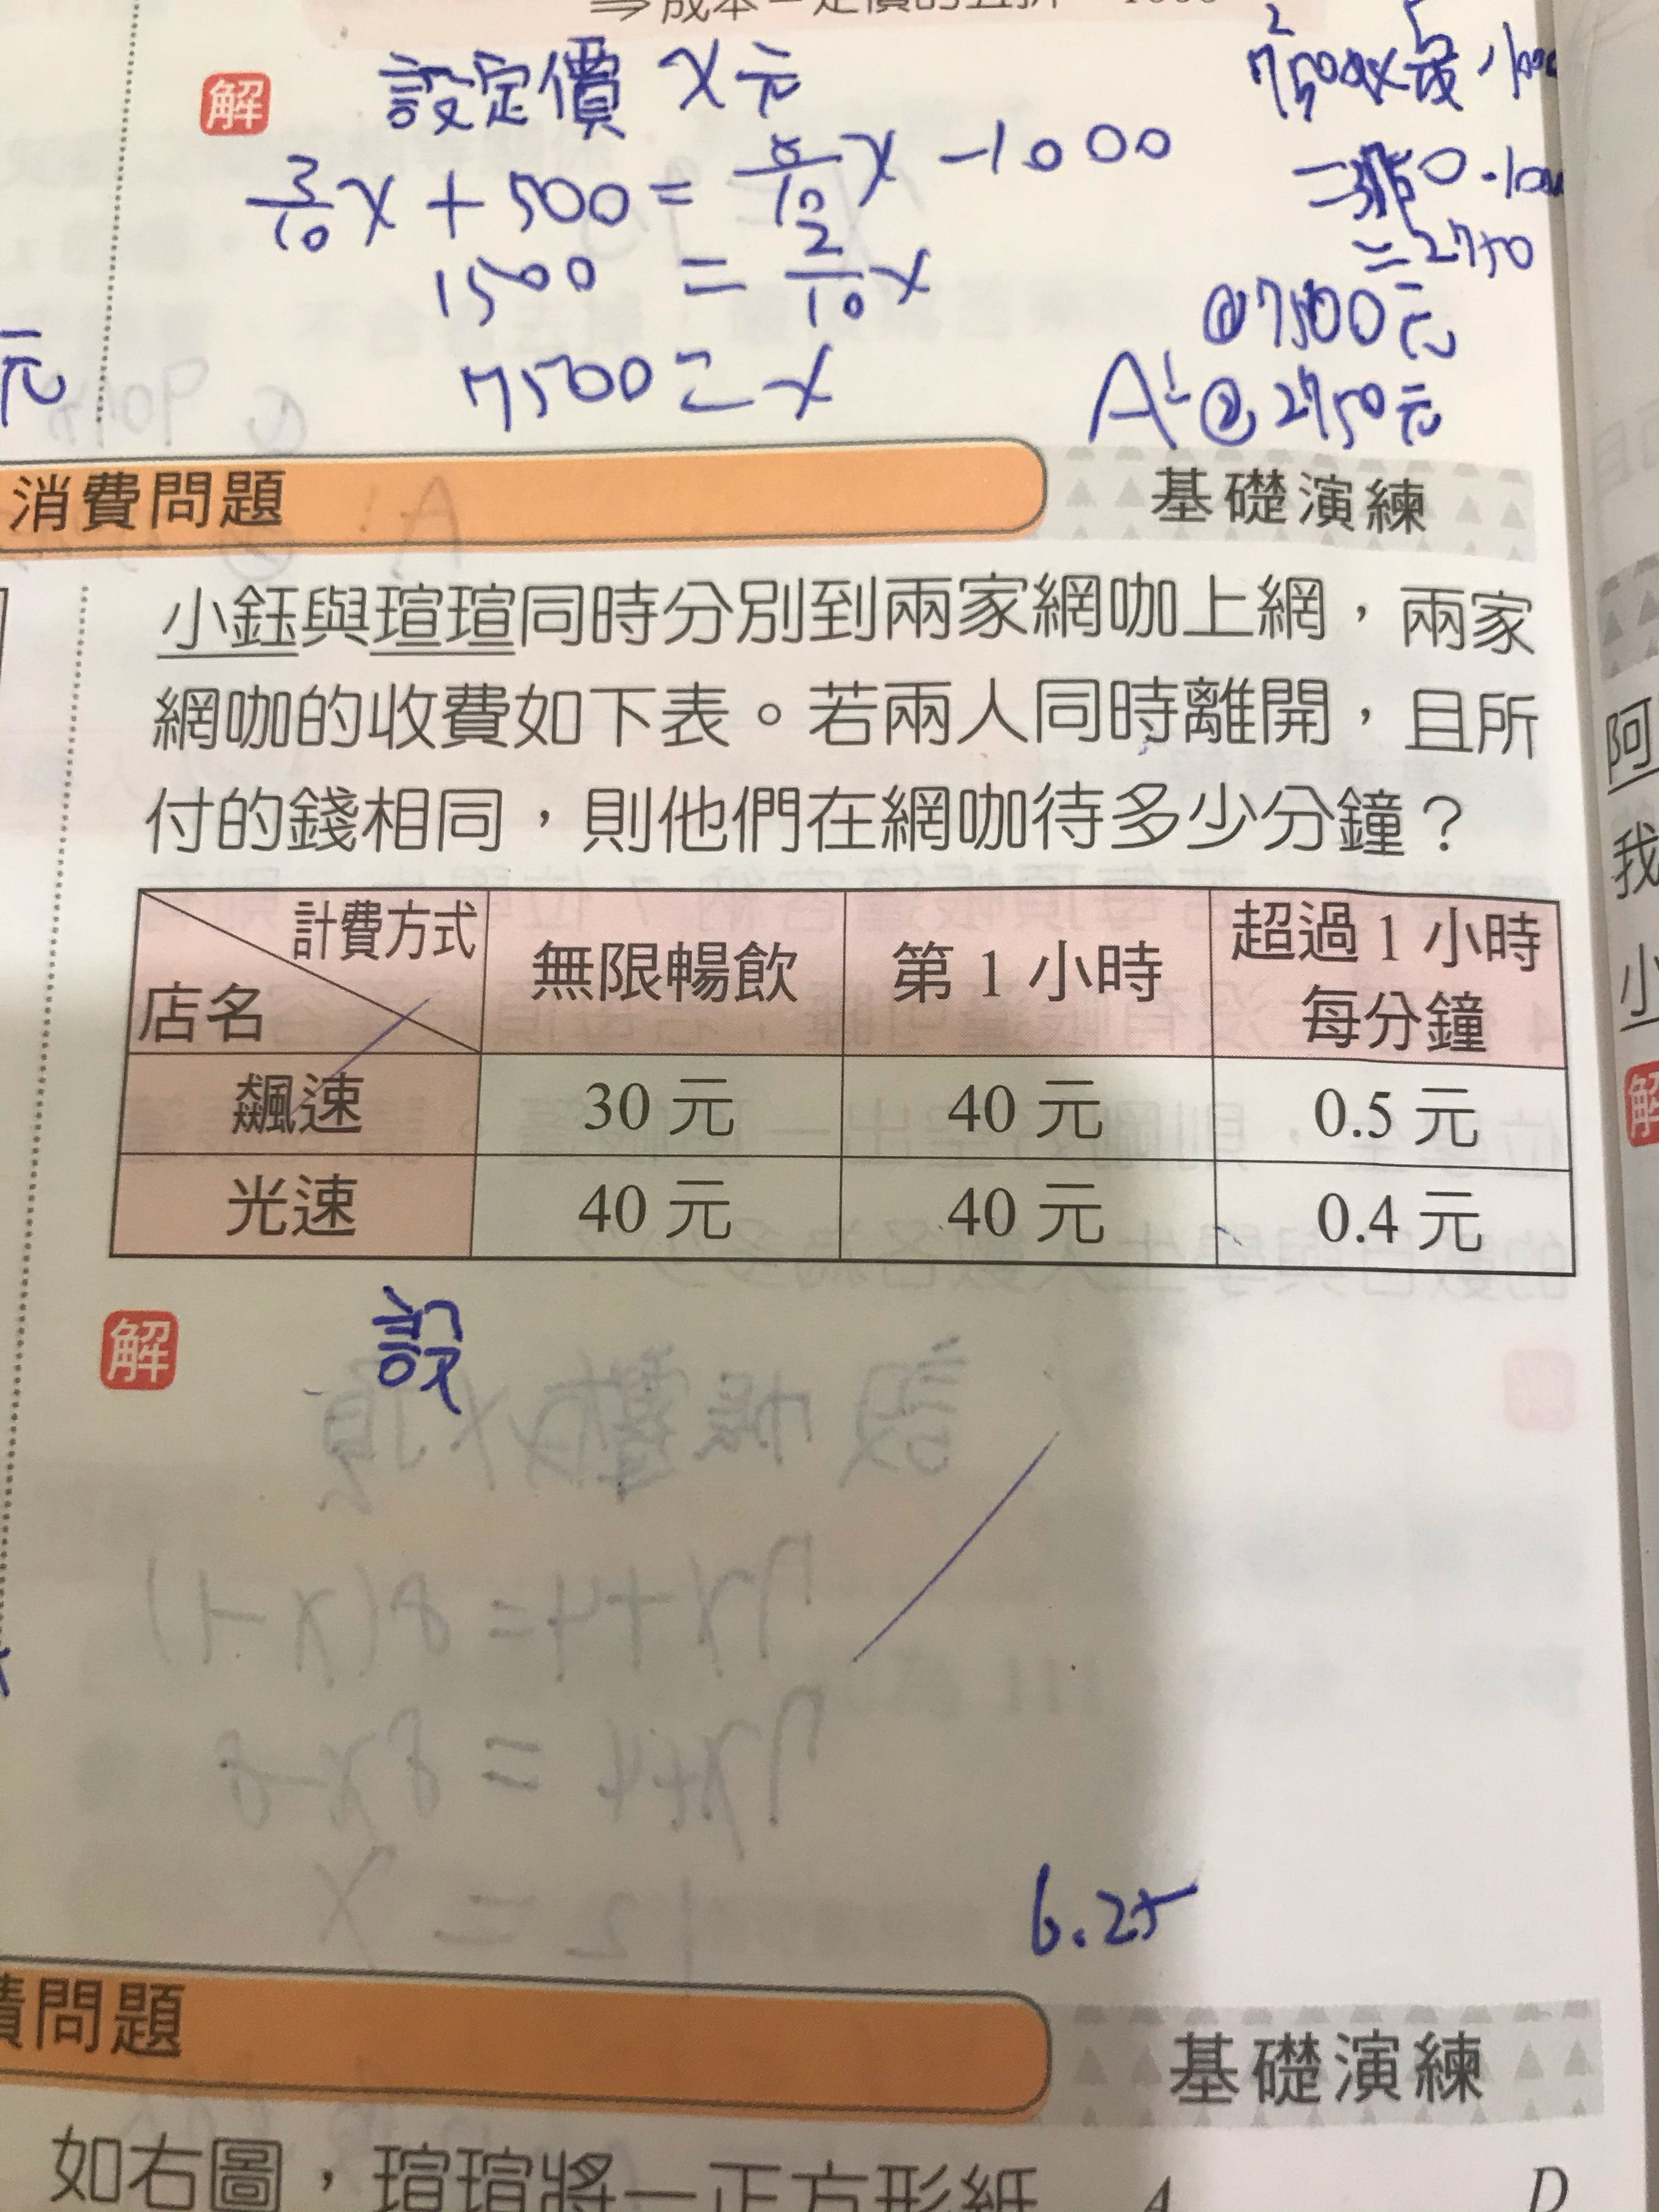 解 設定價 x元
3/10 x + 500 = 5/10 x - 1000
1500 = 2/10 x
7500 = x
= 2750
@7500元
A: @2750元
元
消費問題 基礎演練
小鈺與瑄瑄同時分別到兩家網咖上網，兩家
網咖的收費如下表。若兩人同時離開，且所
付的錢相同，則他們在網咖待多少分鐘？
計費方式 店名 無限暢飲 第1小時 超過1小時每分鐘
飆速 30元 40元 0.5元
光速 40元 40元 0.4元
解 設
6.25
積問題 基礎演練
如右圖，瑄瑄將一正方形紙 A D
阿
我
小
解